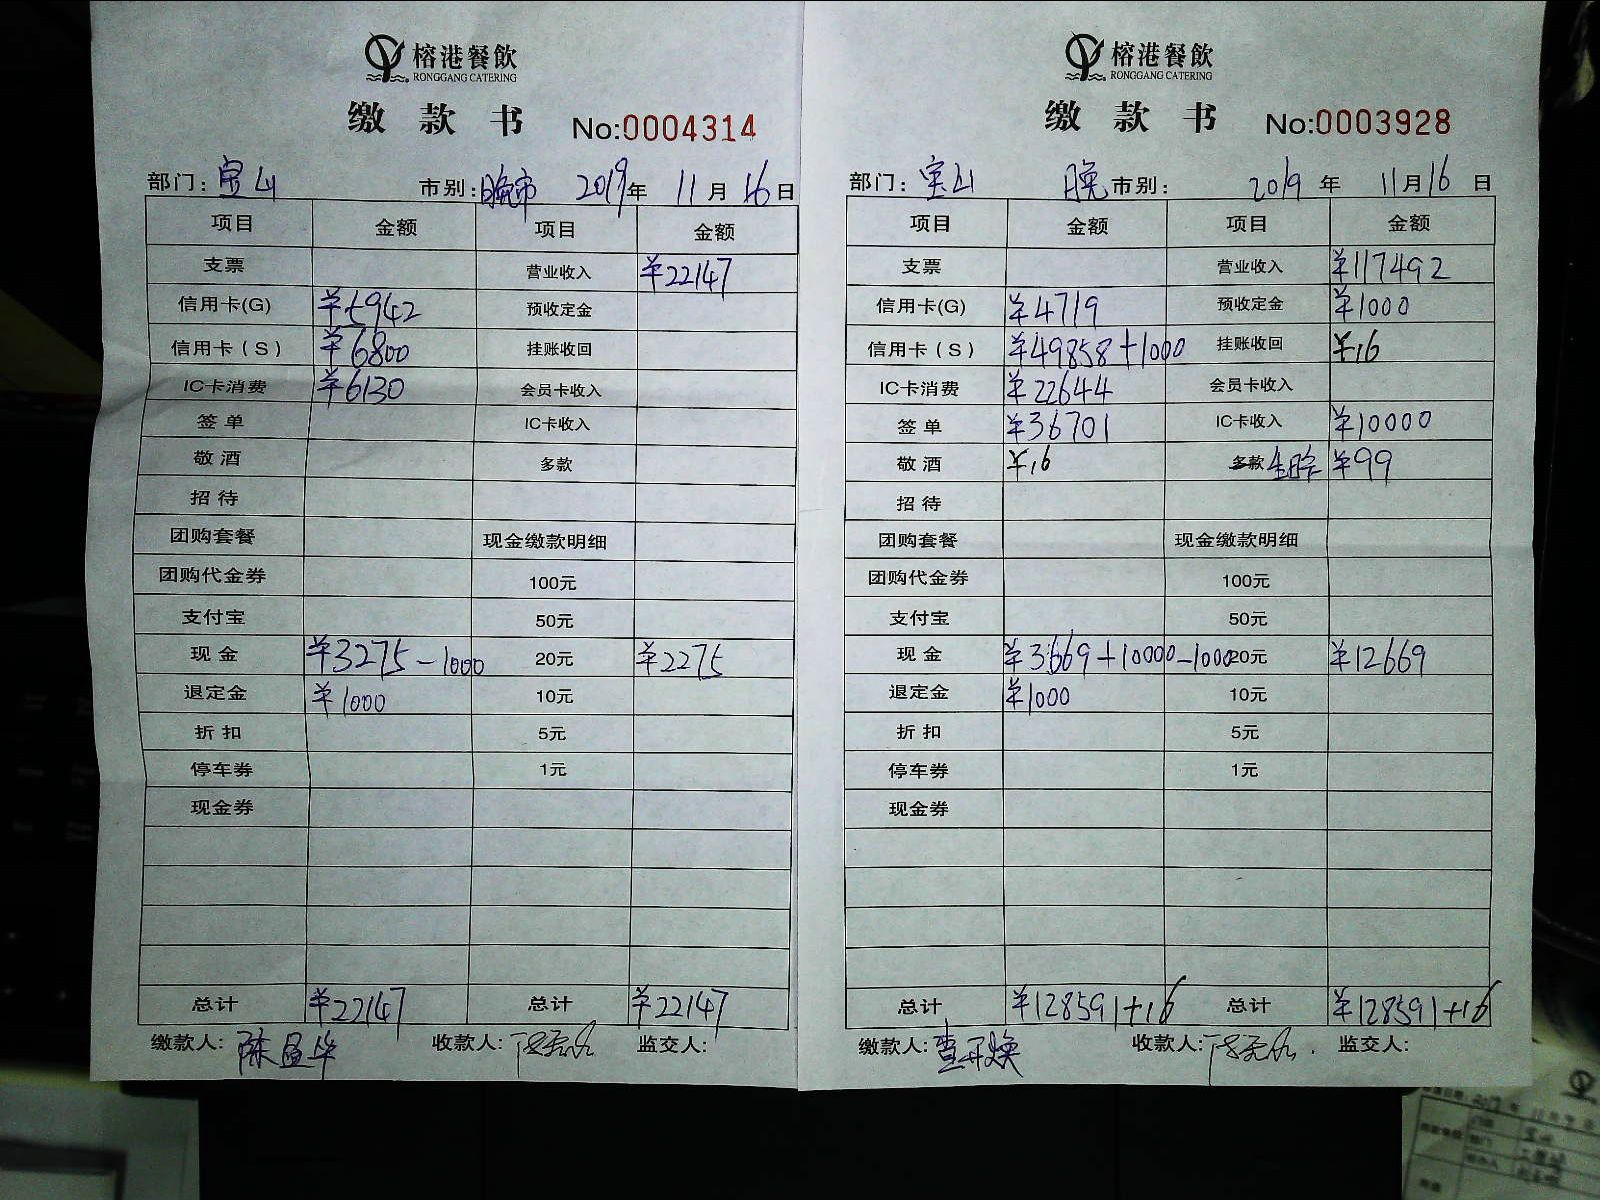 榕港餐飲
RONGGANG CATERING
缴款书 No:0004314
部门：宝山 市别：晚市 2019年 11月16日
项目 金额 项目 金额
支票 营业收入 ¥22147
信用卡(G) ¥5942 预收定金
信用卡(S) ¥6800 挂账收回
IC卡消费 ¥6130 会员卡收入
签单 IC卡收入
敬酒 多款
招待
团购套餐 现金缴款明细
团购代金券 100元
支付宝 50元
现金 ¥3275-1000 20元 ¥2275
退定金 ¥1000 10元
折扣 5元
停车券 1元
现金券
总计 ¥22147 总计 ¥22147
缴款人：陈显华 收款人： 监交人：
榕港餐飲
RONGGANG CATERING
缴款书 No:0003928
部门：宝山 晚市别： 2019年 11月16日
项目 金额 项目 金额
支票 营业收入 ¥117492
信用卡(G) ¥4719 预收定金 ¥1000
信用卡(S) ¥49858+1000 挂账收回 ¥16
IC卡消费 ¥22644 会员卡收入
签单 ¥36701 IC卡收入 ¥10000
敬酒 ¥16 多款 ¥99
招待
团购套餐 现金缴款明细
团购代金券 100元
支付宝 50元
现金 ¥3669+10000-1000 20元 ¥12669
退定金 ¥1000 10元
折扣 5元
停车券 1元
现金券
总计 ¥128591+16 总计 ¥128591+16
缴款人： 收款人： 监交人：